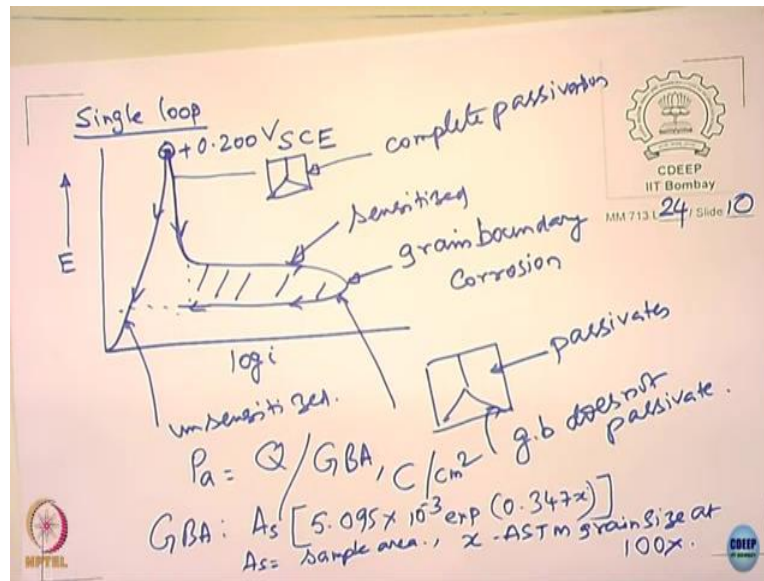 Single loop
+0.200 V SCE
complete passivation
CDEEP
IIT Bombay
MM 713 L 24 / Slide 10
sensitized
grain boundary
corrosion
E
log i
passivates
unsensitized.
g.b does not
passivate.
Pa = Q/GBA, C/cm²
GBA: As [5.095 x 10⁻³ exp (0.347x)]
As = sample area., x - ASTM grain size at
100x.
NPTEL
CDEEP
IIT Bombay